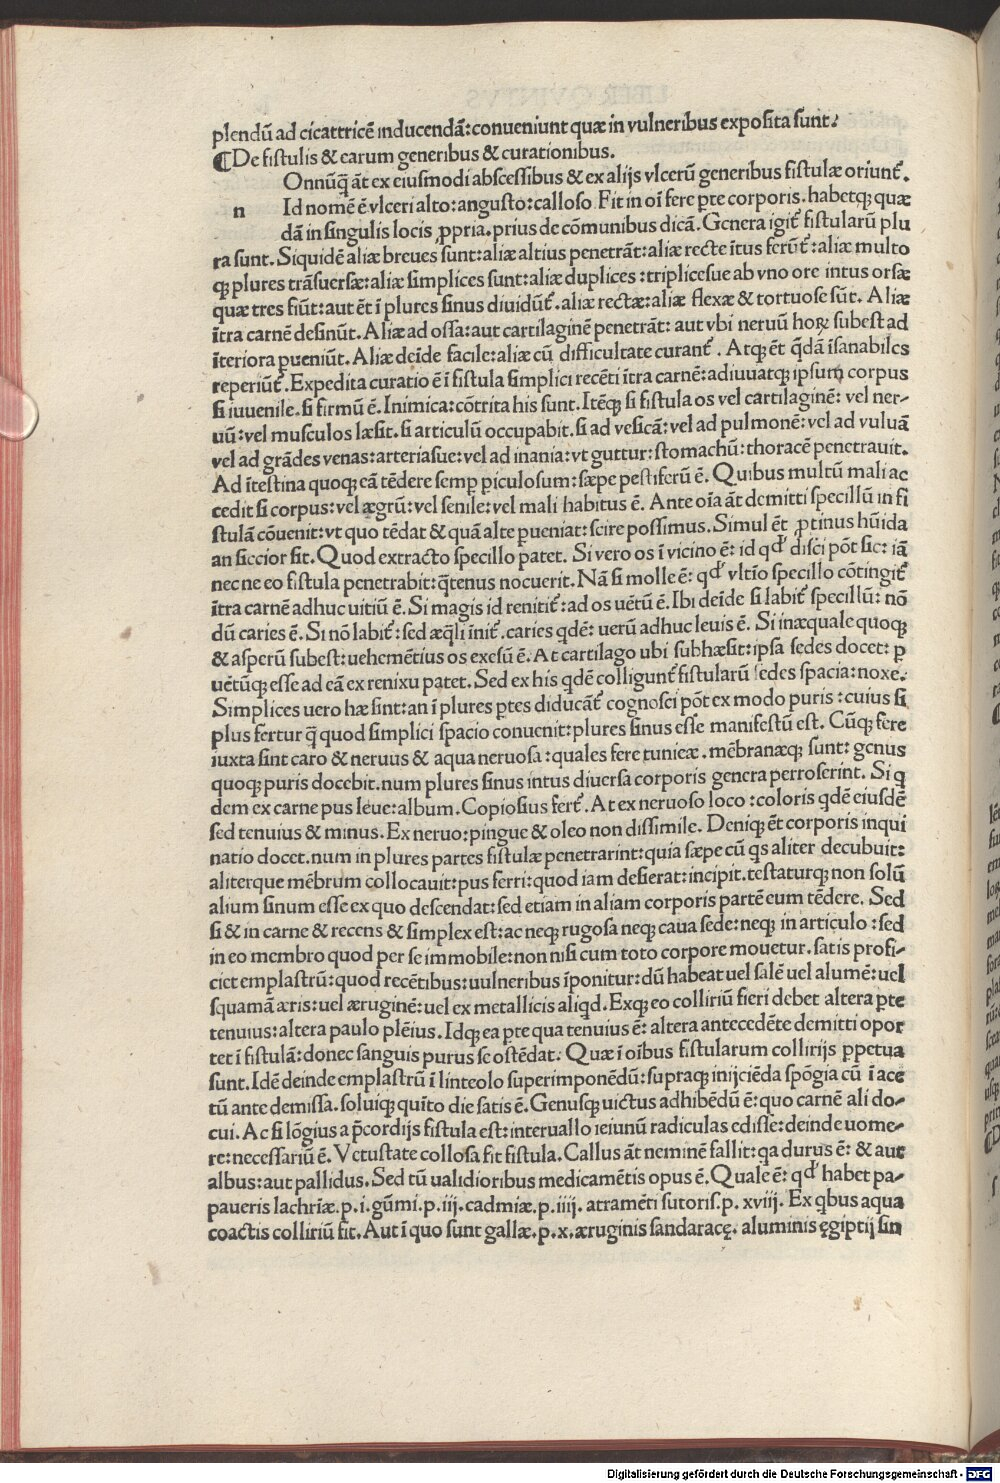 plendū ad cicattricē inducendā:conueniunt quæ in vulneribus exposita sunt.
¶De fistulis & earum generibus & curationibus.
Onnūq̄ āt ex eiusmodi abscessibus & ex alijs vlcerū generibus fistulæ oriunt᷑.
n Id nomē ē vlceri alto:angusto:calloso Fit in oī fere ꝑte corporis.habetqꝫ quæ
dā in singulis locis ꝓpria.prius de cōmunibus dicā.Genera igit᷑ fistularū plu
ra sunt.Siquidē aliæ breues sunt:aliæ altius penetrāt:aliæ recte ītus ferūt᷑:aliæ multo
qꝫ plures trāsuersæ:aliæ simplices sunt:aliæ duplices:triplicesue ab vno ore intus orsæ
quæ tres fiūt:aut ēt ī plures sinus diuidūt᷑.aliæ rectæ:aliæ flexæ & tortuose sūt. Aliæ
ītra carnē desinūt.Aliæ ad ossa:aut cartilaginē penetrāt: aut vbi neruū hoꝝ subest ad
īteriora pueniūt.Aliæ deīde facile:aliæ cū difficultate curant᷑. Atqꝫ ēt q̄dā īsanabiles
reperiūt᷑.Expedita curatio ē ī fistula simplici recēti ītra carnē:adiuuatqꝫ ipsum corpus
si iuuenile.si firmū ē.Inimica:cōtrita his sunt.Itēqꝫ si fistula os vel cartilaginē: vel ner-
uū:vel musculos læsit.si articulū occupabit.si ad vesicā:vel ad pulmonē:vel ad vuluā
vel ad grādes venas:arteriasue:vel ad inania:vt guttur:stomachū:thoracē penetrauit.
Ad ītestina quoqꝫ eā tēdere semꝑ ꝑiculosum:sæpe pestiferū ē.Quibus multū mali ac
cedit si corpus:vel ægrū:vel senile:vel mali habitus ē. Ante oīa āt demitti specillū in fi
stulā cōuenit:vt quo tēdat & quā alte pueniat:scire possimus.Simul ēt ꝓtinus hūida
an siccior sit.Quod extracto specillo patet. Si vero os ī vicino ē: id qđ disci pōt sic: iā
nec ne eo fistula penetrabit:q̄tenus nocuerit.Nā si molle ē: qđ vltīo specillo cōtingit᷑
ītra carnē adhuc uitiū ē.Si magis id renitit᷑:ad os uētū ē.Ibi deīde si labit᷑ specillū: nō
dū caries ē.Si nō labit᷑:sed æq̄li īnit᷑.caries qdē: uerū adhuc leuis ē. Si inæquale quoqꝫ
& asperū subest:uehemētius os exesū ē.At cartilago ubi subhæsit:ipsa sedes docet: ꝑ
uētūqꝫ esse ad eā ex renixu patet. Sed ex his qdē colligunt᷑ fistularū sedes spacia:noxe.
Simplices uero hæ sint:an ī plures ꝑtes diducāt᷑ cognosci pōt ex modo puris:cuius si
plus fertur q̄ quod simplici spacio conuenit:plures sinus esse manifestū est. Cūqꝫ fere
iuxta sint caro & neruus & aqua neruosa:quales fere tunicæ.mēbranæqꝫ sunt: genus
quoqꝫ puris docebit.num plures sinus intus diuersa corporis genera perroserint. Si q
dem ex carne pus leue:album.Copiosius fert᷑.At ex neruoso loco:coloris qdē eiusdē
sed tenuius & minus.Ex neruo:pingue & oleo non dissimile. Deniqꝫ ēt corporis inqui
natio docet.num in plures partes fistulæ penetrarint:quia sæpe cū qs aliter decubuit:
aliterque mēbrum collocauit:pus ferri:quod iam desierat:incipit.testaturqꝫ non solū
alium sinum esse ex quo descendat:sed etiam in aliam corporis partē eum tēdere. Sed
si & in carne & recens & simplex est:ac neqꝫ rugosa neqꝫ caua sede:neqꝫ in articulo:sed
in eo membro quod per se immobile:non nisi cum toto corpore mouetur.satis profi-
ciet emplastrū:quod recētibus:uulneribus īponitur:dū habeat uel salē uel alumē:uel
squamā æris:uel æruginē:uel ex metallicis aliqd.Exqꝫ eo colliriū fieri debet altera ꝑte
tenuius:altera paulo plēius.Idqꝫ ea ꝑte qua tenuius ē: altera antecedēte demitti opor
tet ī fistulā:donec sanguis purus se ostēdat. Quæ ī oībus fistularum collirijs ꝑpetua
sunt.Idē deinde emplastrū ī linteolo superimponēdū:supraqꝫ inijciēda spōgia cū ī ace
tū ante demissa.soluiqꝫ quīto die satis ē.Genusqꝫ uictus adhibēdū ē:quo carnē ali do-
cui.Ac si lōgius a p̄cordijs fistula est:interuallo ieiunū radiculas edisse:deinde uome-
re:necessariū ē.Vetustate collosa fit fistula.Callus āt neminē fallit:qa durus ē: & aut
albus:aut pallidus.Sed tū ualidioribus medicamētis opus ē.Quale ē: qđ habet pa-
paueris lachriæ.p.i.gūmi.p.iij.cadmiæ.p.iiij.atramēti sutoris.p.xviij. Ex qbus aqua
coactis colliriū fit.Aut ī quo sunt gallæ.p.x.æruginis sandaracę.aluminis ęgiptij sin
Digitalisierung gefördert durch die Deutsche Forschungsgemeinschaft - DFG